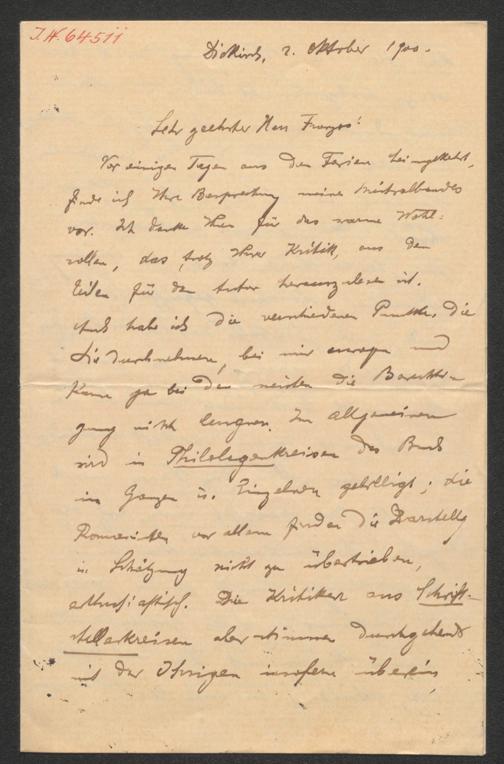 I.N. 64511
Diekirch, 2. Oktober 1900.
Sehr geehrter Herr Franzos!
Vor einigen Tagen aus den Ferien heimgekehrt,
finde ich Ihre Besprechung meines Mistralbandes
vor. Ich danke Ihnen für das warme Wohl-
wollen, das trotz Ihrer Kritik, aus den
Zeilen für den Autor herauszulesen ist.
Auch habe ich die verschiedenen Punkte, die
Sie durchnehmen, bei mir erwogen und
kann ja bei den meisten die Berechti-
gung nicht leugnen. Im Allgemeinen
wird in Philologenkreisen das Buch
im Ganzen u. Einzelnen gebilligt; die
Romanisten vor allem finden die Darstellg
u. Schätzung nicht zu übertrieben,
enthusiastisch. Die Kritiker aus Schrift-
stellerkreisen aber stimmen durchgehends
mit der Ihrigen insofern überein,